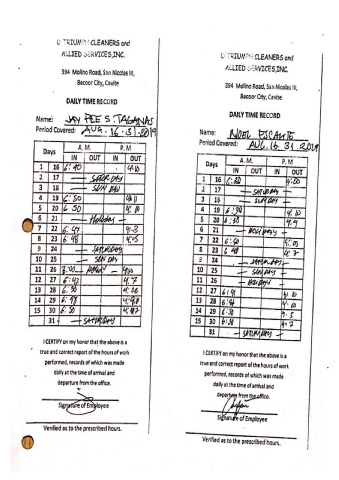 D'TRIUMPH CLEANERS and
ALLIED SERVICES, INC.
394 Molino Road, San Nicolas III,
Bacoor City, Cavite
DAILY TIME RECORD
Name: JAY PEE S. TAGANAS
Period Covered: AUG. 16-31-2019
Days A. M. P. M
IN OUT IN OUT
1 16 6:40 4:10
2 17 — SATURDAY —
3 18 — SUNDAY —
4 19 6:50 4:11
5 20 6:50 4:10
6 21 — Holiday —
7 22 6:47 4:3
8 23 6:48 4:05
9 24 — SATURDAY —
10 25 — SUNDAY
11 26 7:00
12 27 6:42 4:7
13 28 6:50 4:06
14 29 6:47
15 30 6:50
31 — SATURDAY —
I CERTIFY on my honor that the above is a
true and correct report of the hours of work
performed, records of which was made
daily at the time of arrival and
departure from the office.
Signature of Employee
Verified as to the prescribed hours.
D'TRIUMPH CLEANERS and
ALLIED SERVICES, INC.
394 Molino Road, San Nicolas III,
Bacoor City, Cavite
DAILY TIME RECORD
Name: NOEL ESCALTE
Period Covered: AUG. 16 31.2019
Days A. M. P. M
IN OUT IN OUT
1 16 6:30 4:20
2 17 — SATURDAY —
3 18 — SUNDAY —
4 19 6:30 4:10
5 20 6:30 4:9
6 21 — HOLIDAY —
7 22 6:50 4:05
8 23 6:48 4:3
9 24 — SATURDAY —
10 25 — SUNDAY —
11 26 — HOLIDAY —
12 27 6:41 4:10
13 28 6:41 4:10
14 29 6:30 4:5
15 30 6:30 4:7
31 — SATURDAY —
I CERTIFY on my honor that the above is a
true and correct report of the hours of work
performed, records of which was made
daily at the time of arrival and
departure from the office.
Signature of Employee
Verified as to the prescribed hours.